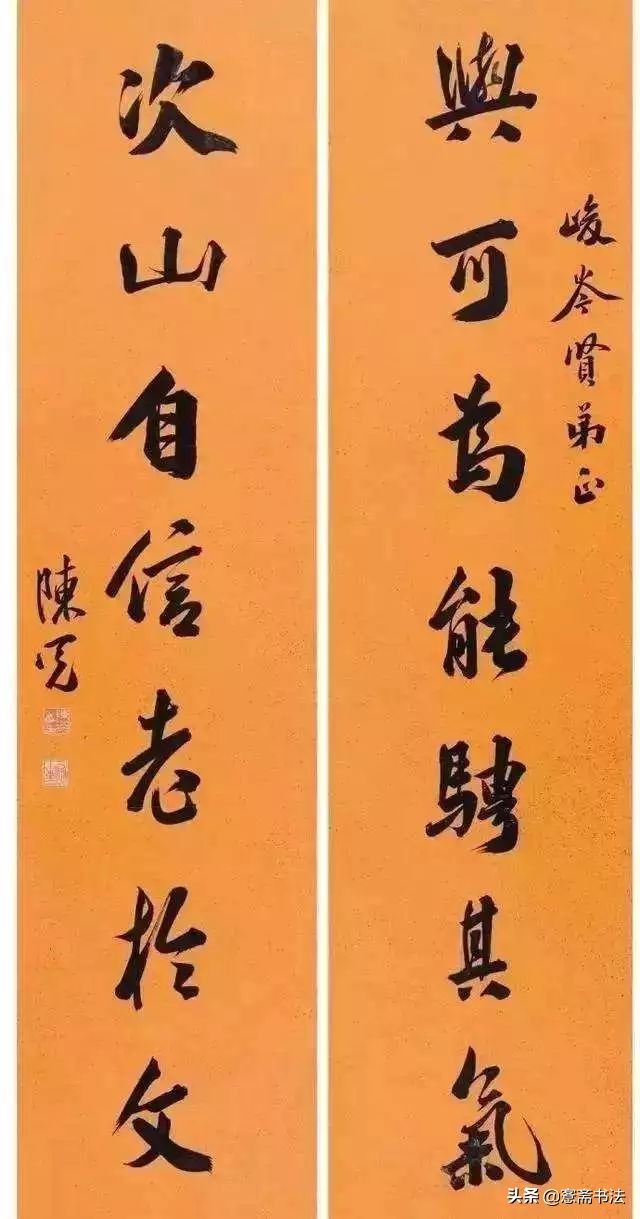 峻岑賢弟正
與可為能騁其氣
次山自信老於文
陳冕
头条 @愙斋书法